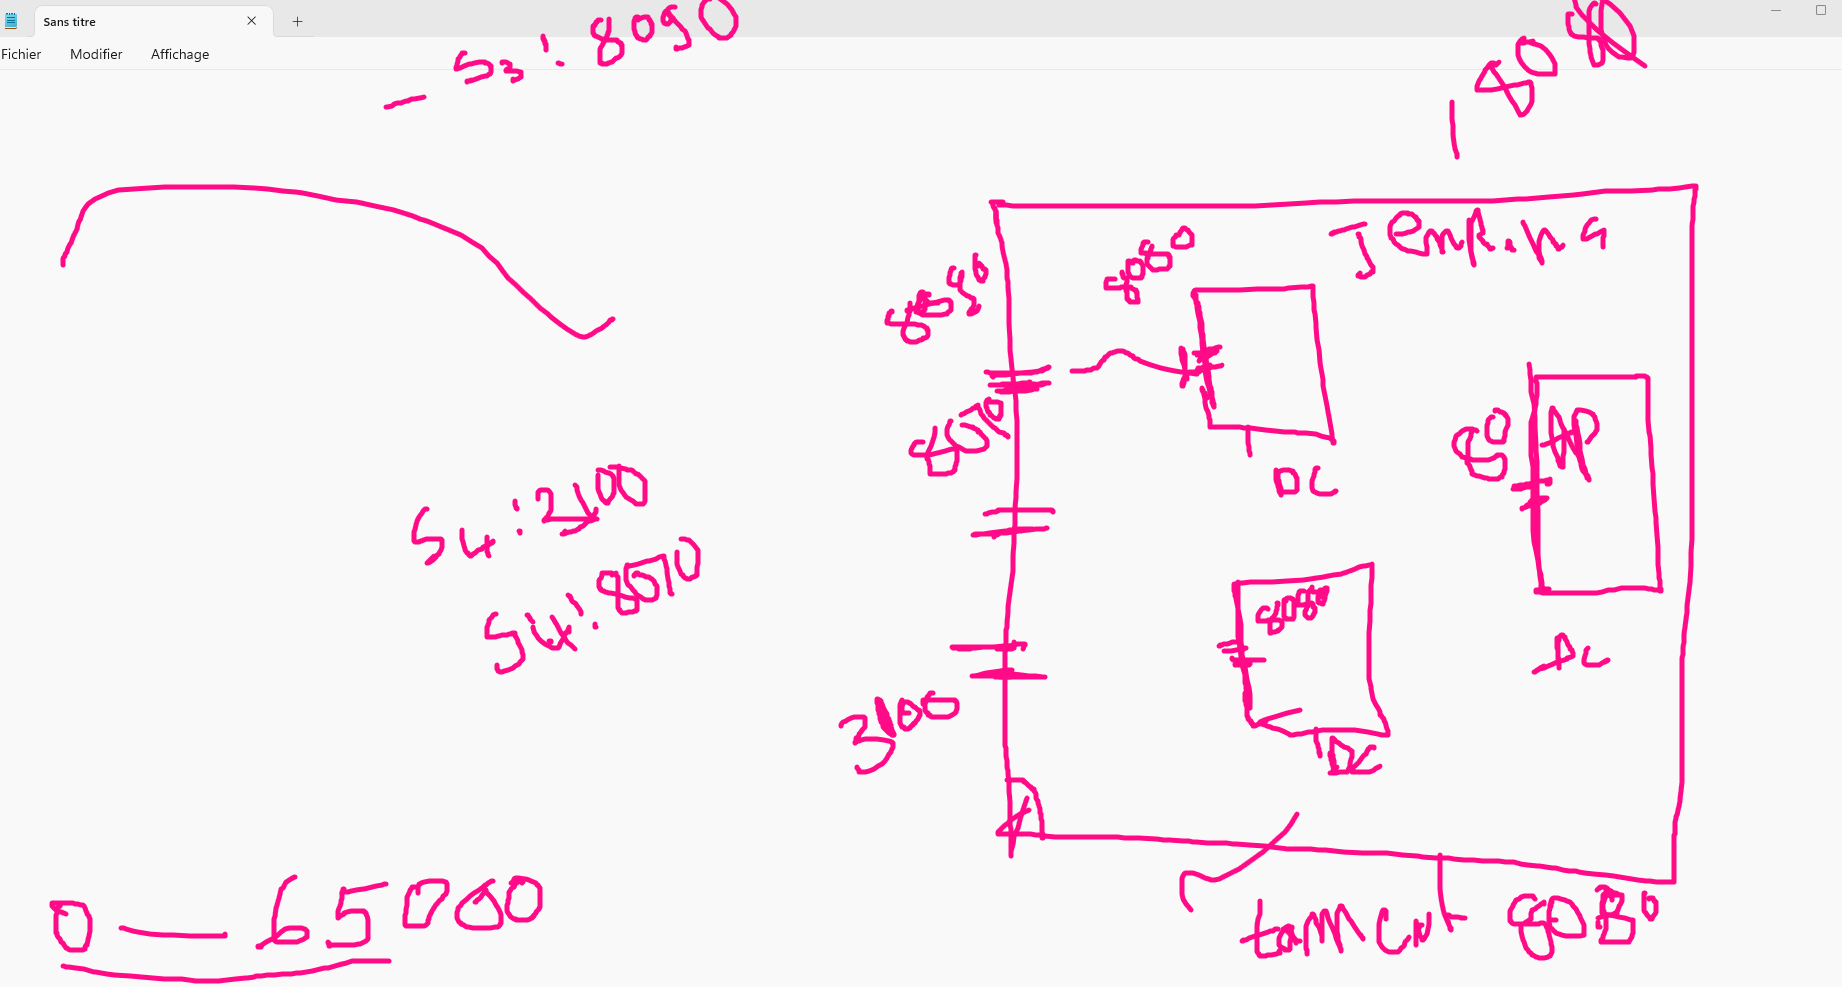 Sans titre
Fichier Modifier Affichage
S3: 8090
8080
Jenkins
8080
DC
8070
80
S4: 2100
S4: 8070
8080
DC
3100
0 — 65000
tomcat 8080